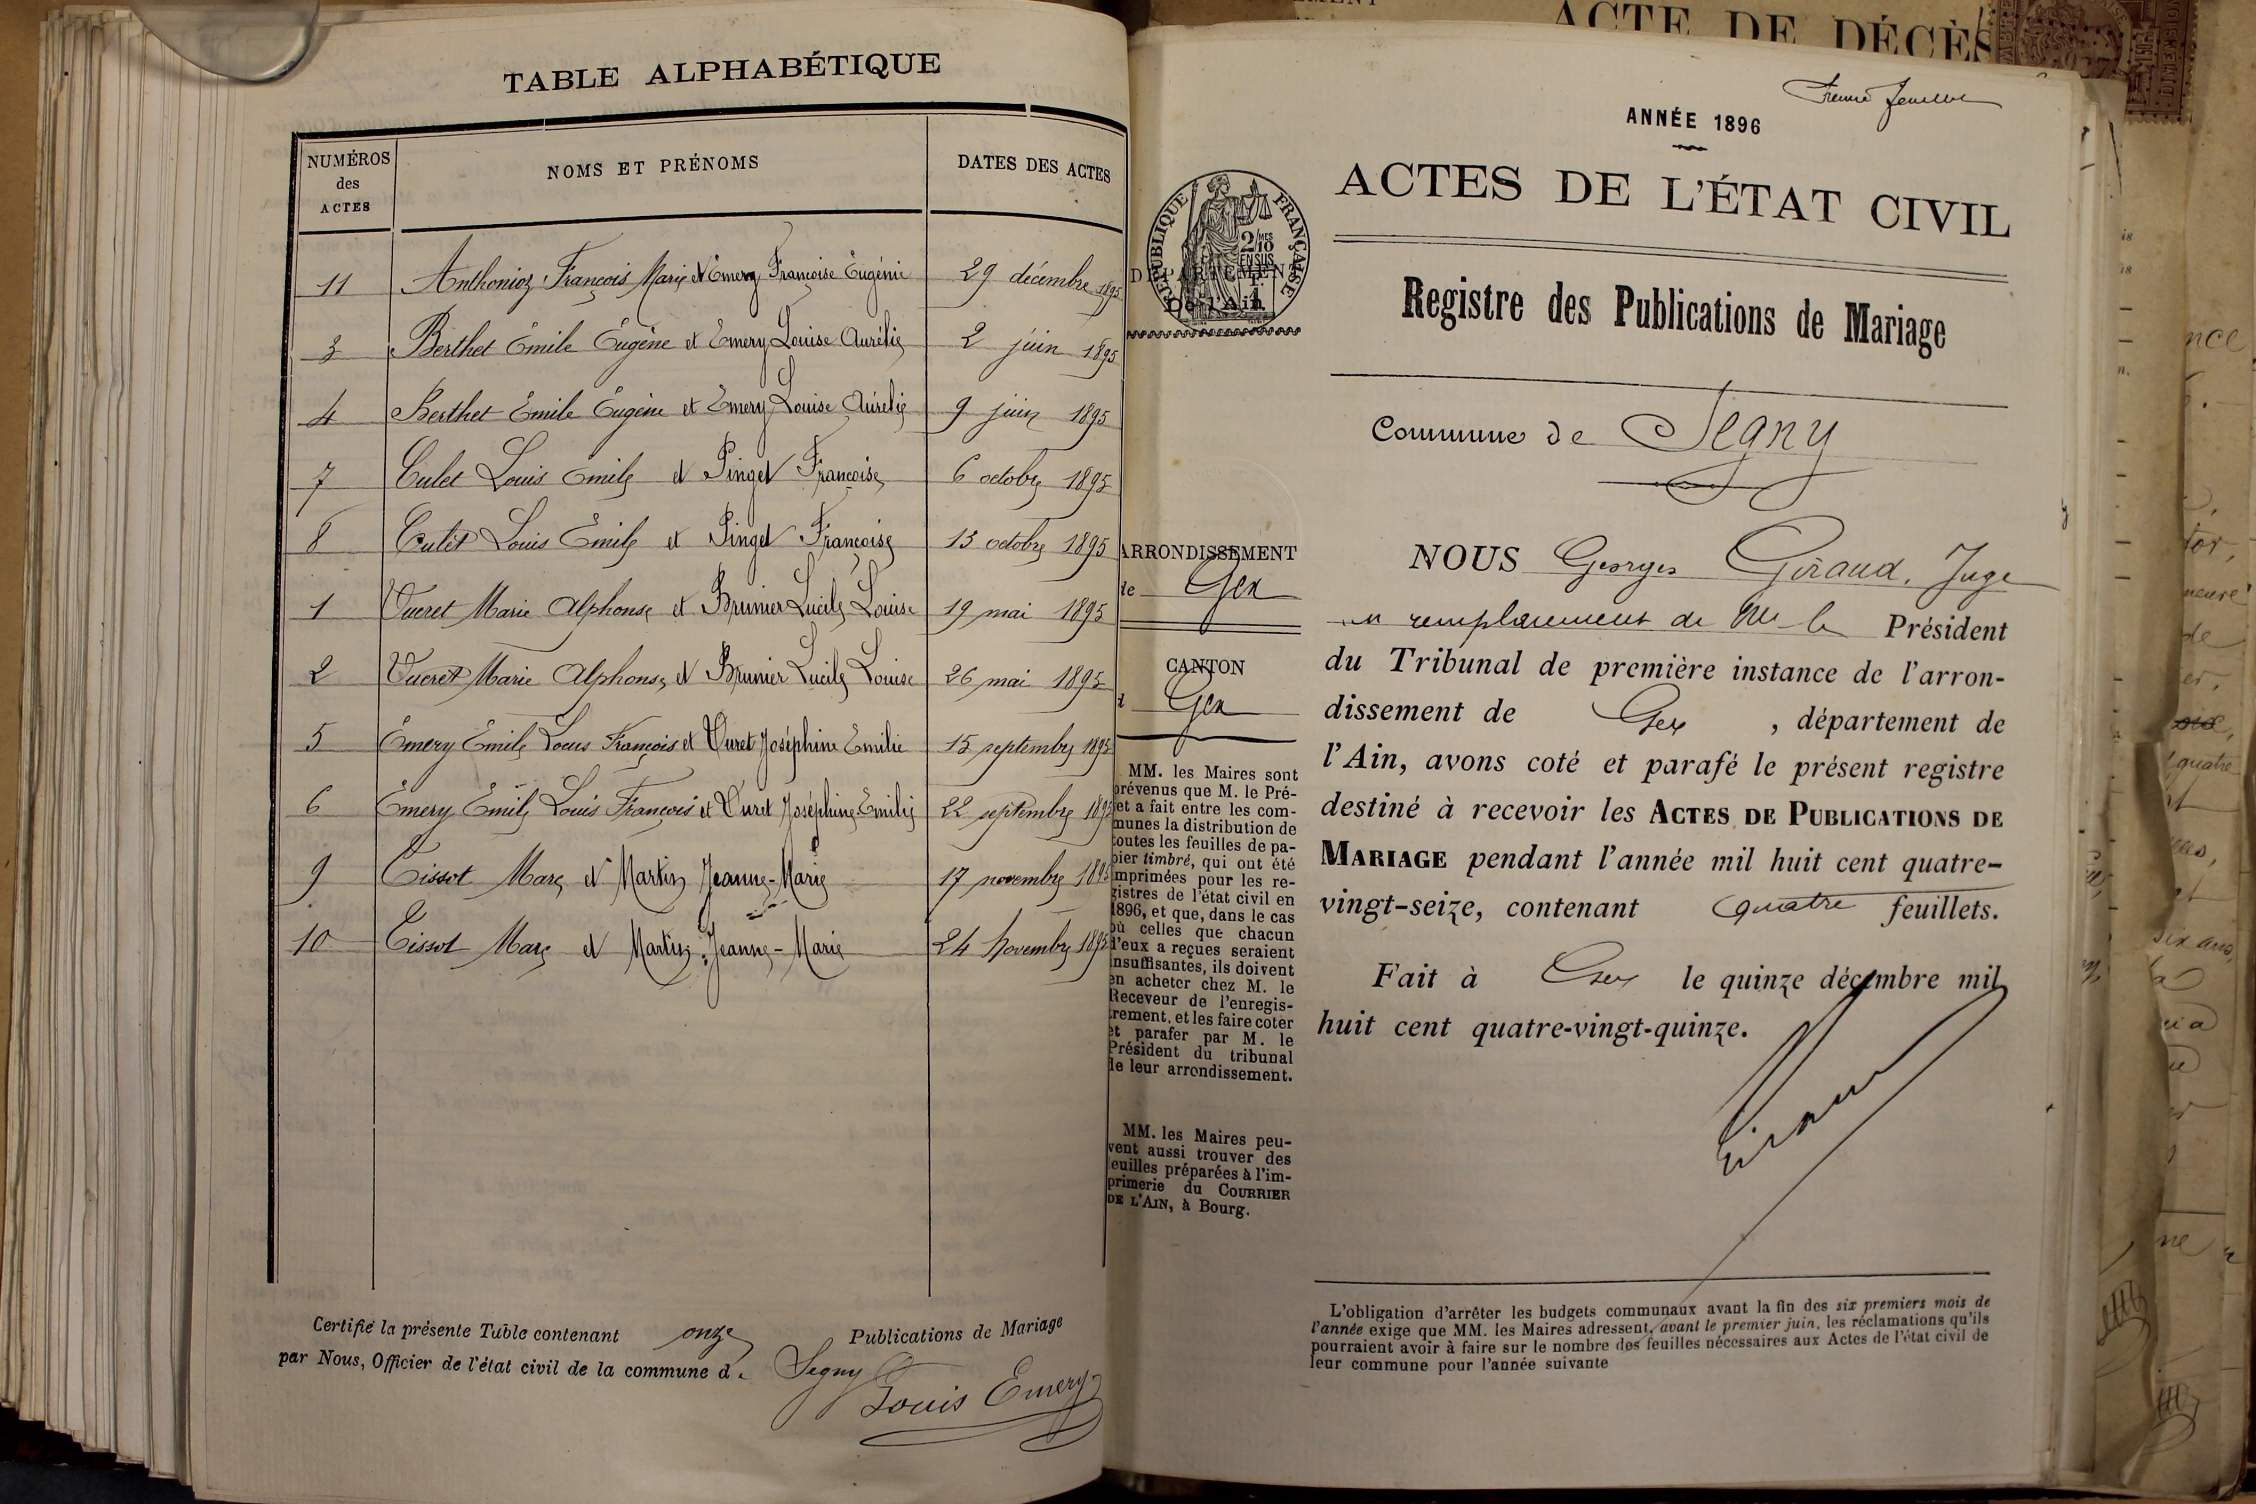 TABLE ALPHABÉTIQUE
NUMÉROS des ACTES
NOMS ET PRÉNOMS
DATES DES ACTES
11 Anthonioz François Marie et Emery Françoise Eugénie 29 décembre 1895
3 Berthet Émile Eugène et Emery Louise Aurélie 2 juin 1895
4 Berthet Emile Eugène et Emery Louise Aurélie 9 juin 1895
7 Culet Louis Emile et Pinget Françoise 6 octobre 1895
8 Culet Louis Emile et Pinget Françoise 13 octobre 1895
1 Vueret Marie Alphonse et Brunier Lucile Louise 19 mai 1895
2 Vueret Marie Alphonse et Brunier Lucile Louise 26 mai 1895
5 Émery Emile Louis François et Vuret Joséphine Emilie 15 septembre 1895
6 Émery Emile Louis François et Vuret Joséphine Emilie 22 septembre 1895
9 Tissot Marc et Martin Jeanne-Marie 17 novembre 1895
10 Tissot Marc et Martin Jeanne-Marie 24 novembre 1895
Certifié la présente Table contenant onze Publications de Mariage
par Nous, Officier de l'état civil de la commune de Segny
Louis Emery
ACTE DE DÉCÈS
ANNÉE 1896
ACTES DE L'ÉTAT CIVIL
RÉPUBLIQUE FRANÇAISE
2/10MES
EN SUS
DÉPARTEMENT
De l'Ain
Registre des Publications de Mariage
Commune de Segny
ARRONDISSEMENT
de Gex
CANTON
d Gex
MM. les Maires sont
prévenus que M. le Pré-
fet a fait entre les com-
munes la distribution de
toutes les feuilles de pa-
pier timbré, qui ont été
imprimées pour les re-
gistres de l'état civil en
1896, et que, dans le cas
où celles que chacun
d'eux a reçues seraient
insuffisantes, ils doivent
en acheter chez M. le
Receveur de l'enregis-
trement, et les faire coter
et parafer par M. le
Président du tribunal
de leur arrondissement.
MM. les Maires peu-
vent aussi trouver des
feuilles préparées à l'im-
primerie du COURRIER
DE L'AIN, à Bourg.
NOUS Georges Giraud, Juge
en remplacement de Mr le Président
du Tribunal de première instance de l'arron-
dissement de Gex , département de
l'Ain, avons coté et parafé le présent registre
destiné à recevoir les ACTES DE PUBLICATIONS DE
MARIAGE pendant l'année mil huit cent quatre-
vingt-seize, contenant quatre feuillets.
Fait à Gex le quinze décembre mil
huit cent quatre-vingt-quinze.
Giraud
L'obligation d'arrêter les budgets communaux avant la fin des six premiers mois de
l'année exige que MM. les Maires adressent, avant le premier juin, les réclamations qu'ils
pourraient avoir à faire sur le nombre des feuilles nécessaires aux Actes de l'état civil de
leur commune pour l'année suivante